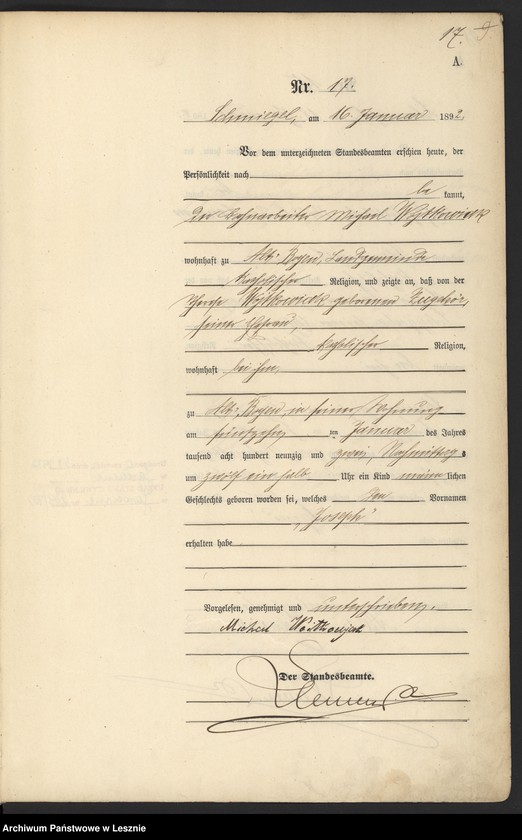 17.
A.
Nr. 17.
Schmiegel, am 16. Januar 1892.
Vor dem unterzeichneten Standesbeamten erschien heute, der
Persönlichkeit nach
be kannt,
der Bahnarbeiter Michael Woytkowiak
wohnhaft zu Alt-Boyen, Landgemeinde
katholischer Religion, und zeigte an, daß von der
Therese Woytkowiak geborenen
seiner Ehefrau,
katholischer Religion,
wohnhaft bei ihm,
zu Alt-Boyen, in seiner Wohnung
am fünfzehn ten Januar des Jahres
tausend acht hundert neunzig und zwei, Nachmittags
um zwölf ein halb Uhr ein Kind männ lichen
Geschlechts geboren worden sei, welches den Vornamen
Joseph
erhalten habe
Vorgelesen, genehmigt und unterschrieben.
Michael
Der Standesbeamte.
Archiwum Państwowe w Lesznie